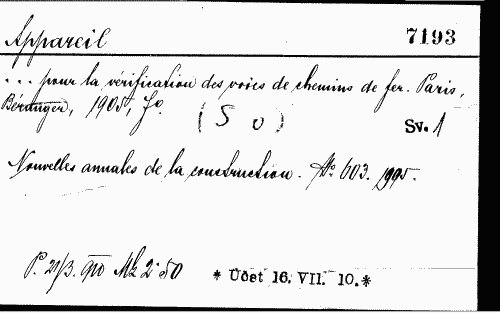 Appareil 7193
... pour la vérification des voies de chemins de fer. Paris,
Béranger, 1905, fo. (S o) Sv. 1
Nouvelles annales de la construction. No. 603. 1905.
P. 21/3. 910 Mk 2.50 * Udet 16. VII. 10. *